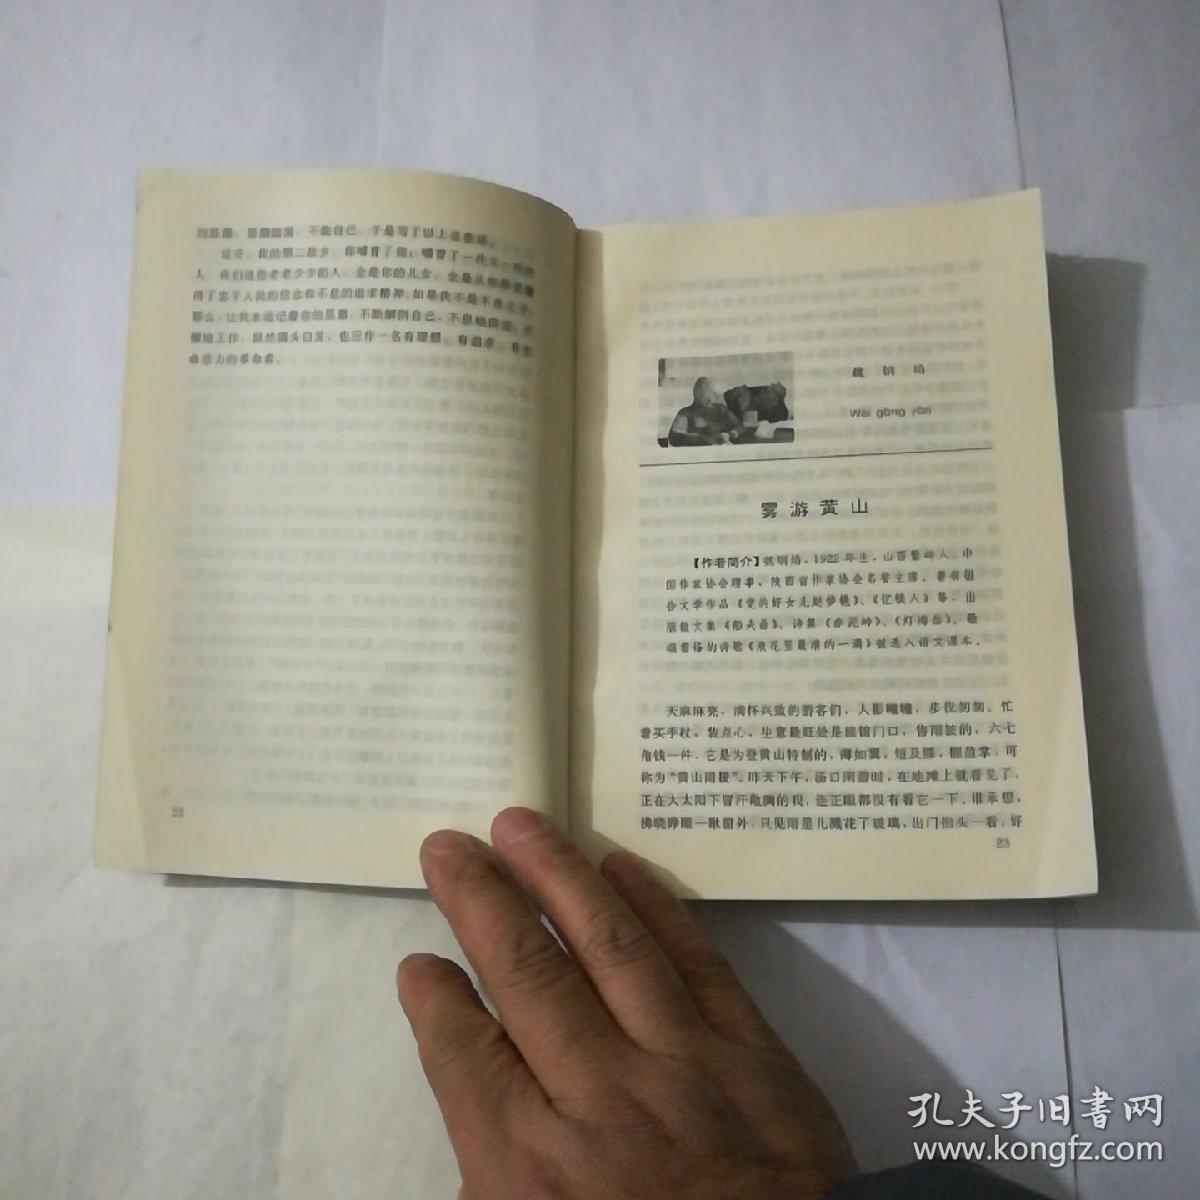 的恩德，思潮汹涌，不能自己，于是写了以上这些话。
延安，我的第二故乡，你哺育了我，哺育了一代又一代的
人，我们这些老老少少的人，全是你的儿女，全是从你那里懂
得了忠于人民的信念和不息的追求精神。如果我不是不肖之子，
那么，让我永远记着你的恩德，不断解剖自己，不息地前进，不
懈地工作，纵然满头白发，也应作一名有理想、有追求、有生
命活力的革命者。
22
魏 钢 焰
Wèi gāng yàn
雾游黄山
【作者简介】魏钢焰，1922年生，山西繁峙人。中
国作家协会理事，陕西省作家协会名誉主席，著有报
告文学作品《党的好女儿赵梦桃》、《忆铁人》等，出
版散文集《船夫曲》、诗集《赤泥岭》、《灯海曲》，歌
颂雷锋的诗歌《浪花里最清的一滴》被选入语文课本。
天麻麻亮，满怀兴致的游客们，人影幢幢，步伐匆匆。忙
着买手杖，装点心，生意最旺处是旅馆门口，售雨披的，六七
角钱一件，它是为登黄山特制的，薄如翼，短及膝，握盈掌，可
称为“黄山雨披”。昨天下午，汤口闲游时，在地滩上就看见了，
正在大太阳下冒汗敞胸的我，连正眼都没有看它一下，谁承想，
拂晓睁眼一瞅窗外，只见雨星儿溅花了玻璃，出门抬头一看，好
23
孔夫子旧书网
www.kongfz.com